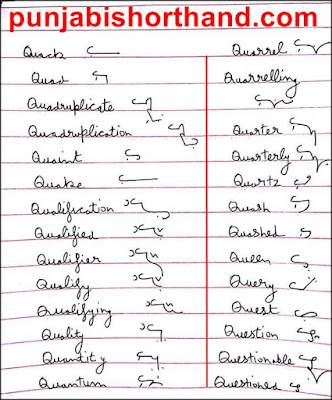 punjabishorthand.com
Quack
Quad
Quadruplicate
Quadruplication
Quaint
Quake
Qualification
Qualified
Qualifier
Qualify
Qualifying
Quality
Quantity
Quantum
Quarrel
Quarrelling
Quarter
Quarterly
Quartz
Quash
Quashed
Queen
Query
Quest
Question
Questionable
Questioned